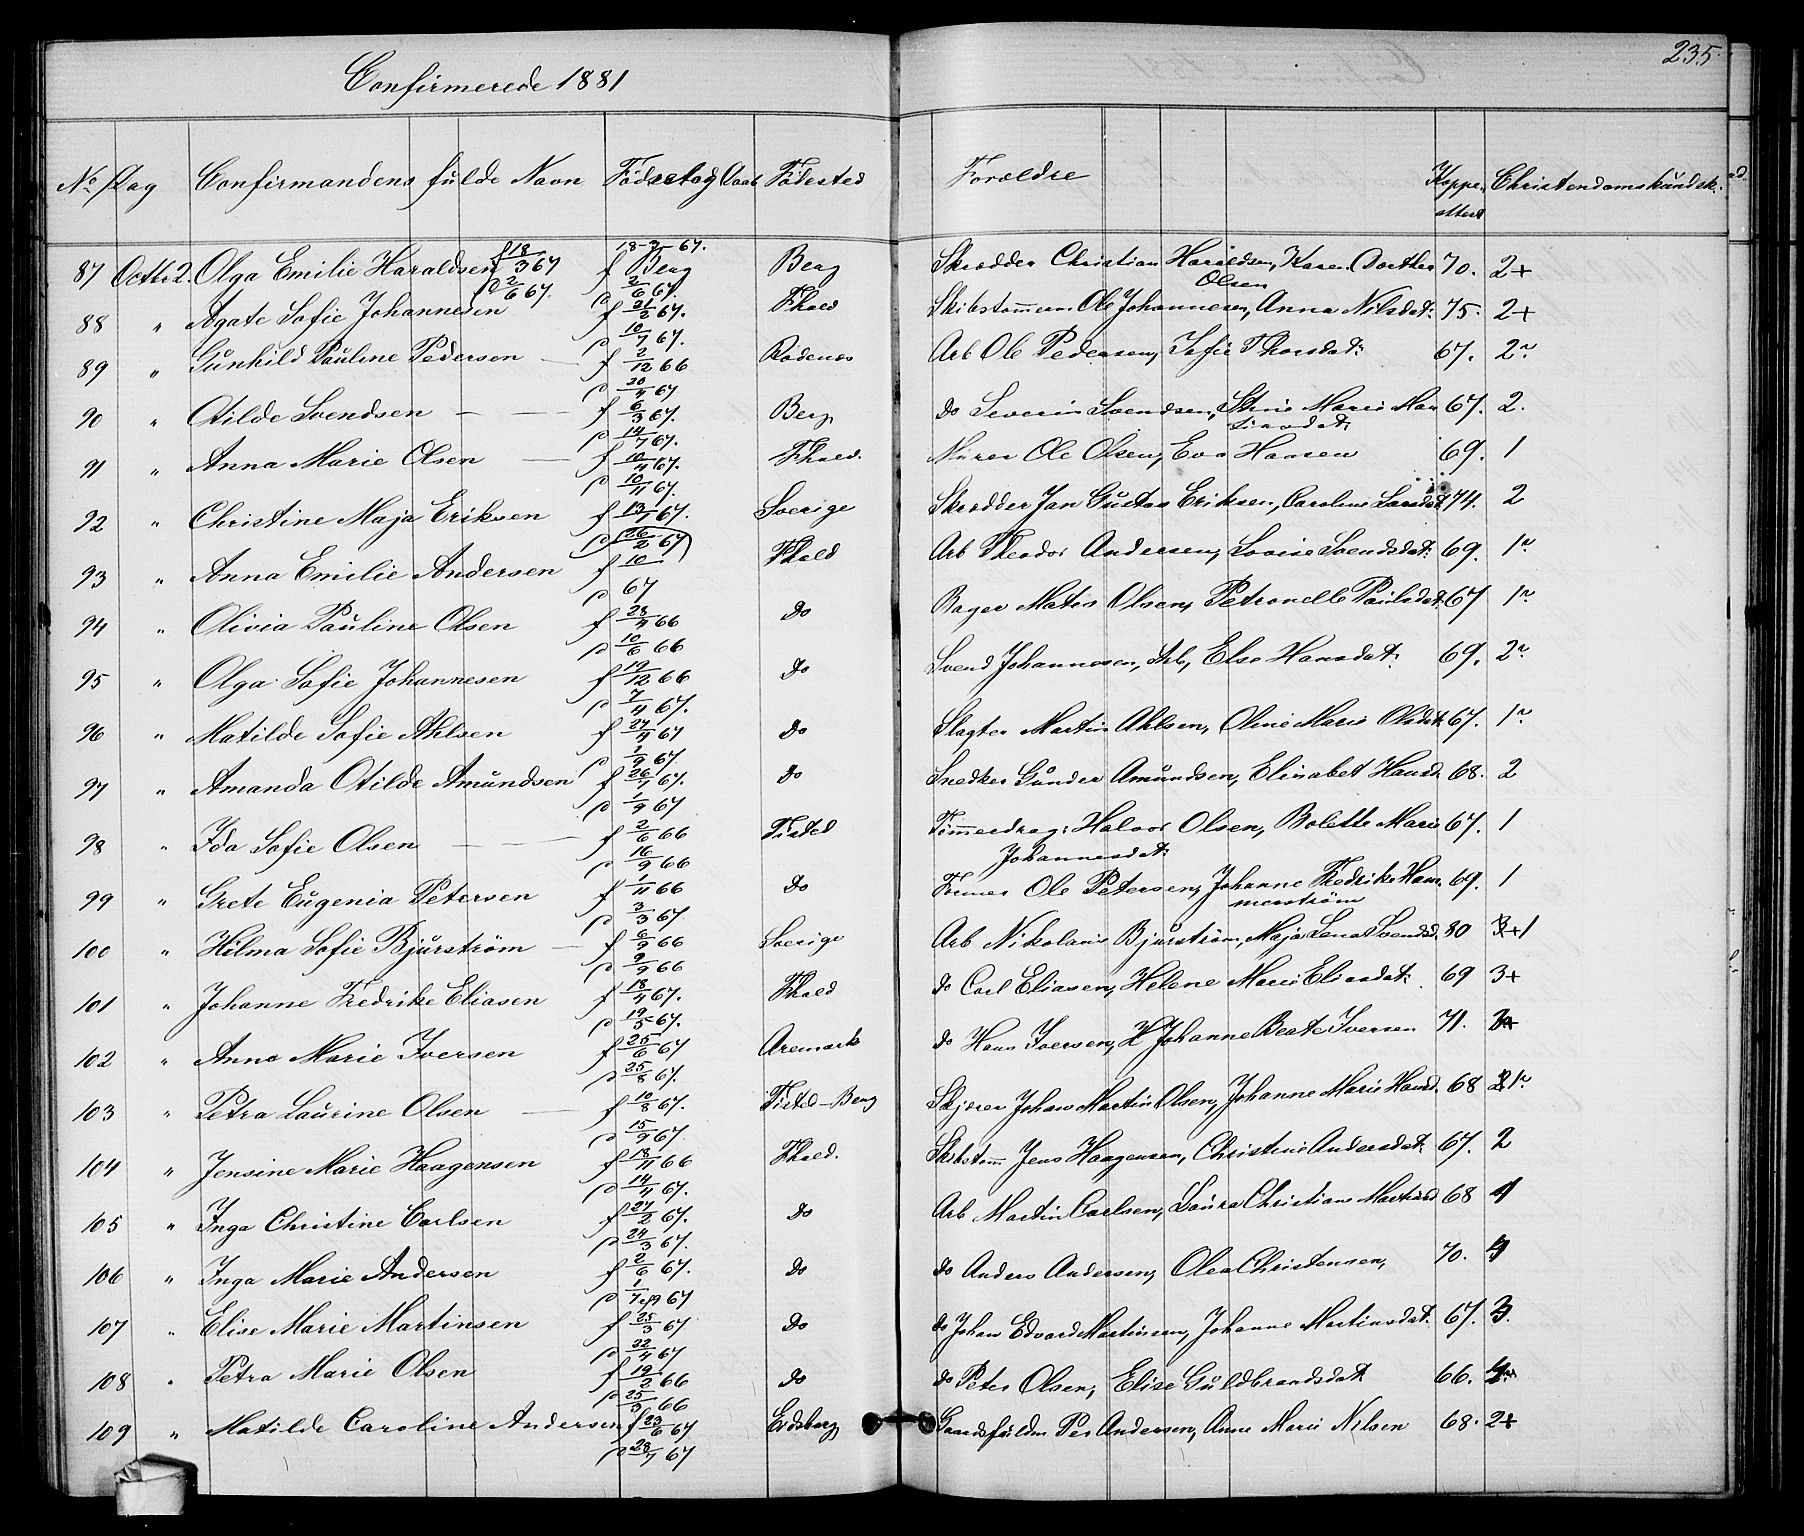 235.
Confirmerede 1881
No Dag Confirmandens fulde Navn Fødselsdag Daab Fødested Forældre Koppe- attest Christendomskundsk.
87 Octbr 2. Olga Emilie Haraldsen f 18/3 67 d 2/6 67. 18-3-67. f Berg 2/6 67 Berg Skrædder Christian Haraldsen, Karen Dorthea Olsen 70. 2+
88 " Agate Sofie Johannesen f 21/2 67. d 10/7 67. Fhald Skibstømerm Ole Johannesen, Anna Nilsdat: 75. 2+
89 " Gunhild Pauline Pedersen f 2/12 66 d 20/4 67 Rødenes Arb Ole Pedersen, Sofie Thorsdat: 67. 2
90 " Otilde Svendsen — f 6/3 67. d 14/7 67. Berg do Severin Svendsen, Marie 67. 2.
91 " Anna Marie Olsen — f 10/4 67. d 10/11 67. Fhald. Murer Ole Olsen, Eva Hansen 69. 1
92 " Christine Maja Eriksen f 13/1 67. d 26/2 67 Sverige Skrædder Jan Gustav Eriksen, Caroline Larsdat 74. 2
93 " Anna Emilie Andersen f 10/ d 67 Fhald Arb Theodor Andersen, Lovise Svendsdat: 69. 1
94 " Olivia Pauline Olsen f 28/4 66 d 10/6 66 do Bager Matis Olsen, Petronelle Paulsdat 67 1
95 " Olga Sofie Johannesen f 19/12 66 d 7/4 67. do Svend Johannesen, Arb, Else Hansdat: 69. 2
96 " Matilde Sofie Ahlsen f 27/4 67 d 1/9 67. do Slagter Martin Ahlsen, Oline Marie Olsdat 67. 1
97 " Amanda Otilde Amundsen f 26/7 67. d 1/9 67 do Snedker Gunder Amundsen, Elisabet Hansd. 68. 2
98 " Ida Sofie Olsen — f 2/6 66 d 16/9 66 Tisted Tømmerdrag: Halvor Olsen, Bolette Marie Johannesdat: 67. 1
99 " Grete Eugenia Petersen f 1/11 66 d 3/3 67. do Former Ole Petersen, Johanne Fredrike Ham- merstrøm 69. 1
100 " Hilma Sofie Bjurstrøm — f 6/9 66 d 9/9 66 Sverige Arb Nikolaus Bjurstrøm, Maja Lena Svendsd. 80 1
101 " Johanne Fredrike Eliasen f 18/4 67. d 19/5 67. Fhald do Carl Eliasen, Helene Marie Eliasdat: 69 3+
102 " Anna Marie Iversen f 25/6 67 d 25/8 67. Aremark do Hans Iversen, Johanne Beate Iversen 71.
103 " Petra Laurine Olsen — f 10/8 67. d 15/9 67. Tisted-Berg Skjærer Johan Martin Olsen, Johanne Marie Hansd. 68 1
104 " Jensine Marie Haagensen f 18/11 66 d 14/4 67. Fhald. Skibstøm Jens Haagensen, Christine Andersdat: 67. 2
105 " Inga Christine Carlsen f 27/2 67. d 24/3 67. do Arb Martin Carlsen, Laura Christiane Martinsd 68
106 " Inga Marie Andersen f 2/6 67. d 1/7 67 do do Anders Andersen, Olea Christensen, 70.
107 " Elise Marie Martinsen f 25/3 67 d 22/4 67 do do Johan Edvard Martinsen, Johanne Martinsdat. 67. 3.
108 " Petra Marie Olsen f 19/2 66 d 25/3 66 do do Peter Olsen, Elise Guldbrandsdat 66.
109 " Matilde Caroline Andersen f 23/6 67 d 28/7 67 Eidsberg Gaardsfuldm Per Andersen, Anne Marie Nilsen 68. 2+